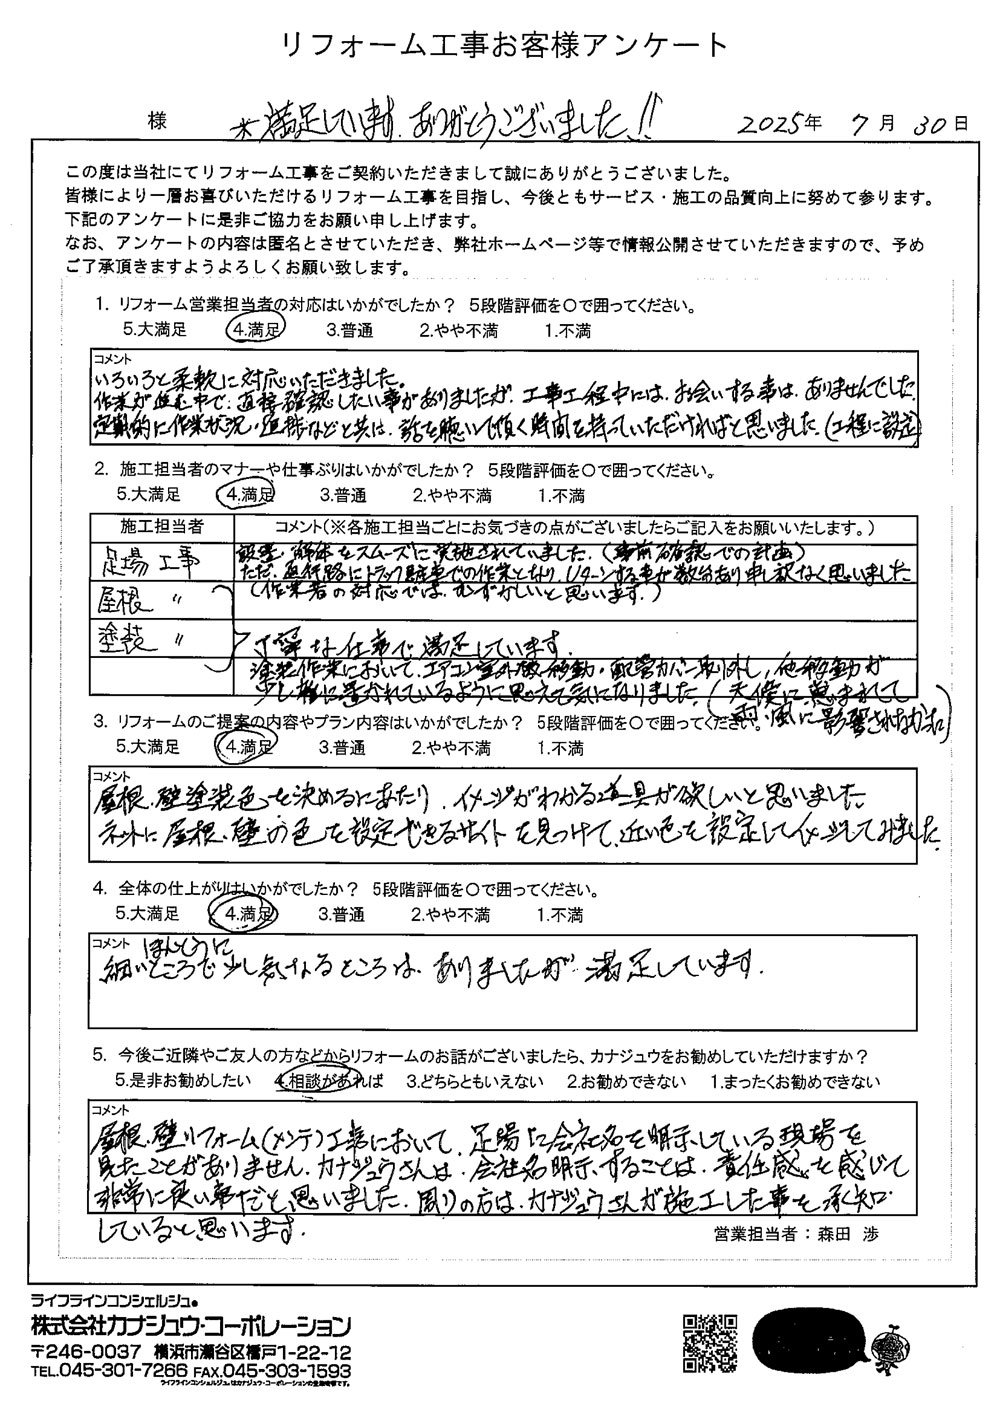 リフォーム工事お客様アンケート
様 ※満足しています。ありがとうございました!! 2025年 7月 30日
この度は当社にてリフォーム工事をご契約いただきまして誠にありがとうございました。
皆様により一層お喜びいただけるリフォーム工事を目指し、今後ともサービス・施工の品質向上に努めて参ります。
下記のアンケートに是非ご協力をお願い申し上げます。
なお、アンケートの内容は匿名とさせていただき、弊社ホームページ等で情報公開させていただきますので、予め
ご了承頂きますようよろしくお願い致します。
1. リフォーム営業担当者の対応はいかがでしたか? 5段階評価を〇で囲ってください。
5.大満足 4.満足 3.普通 2.やや不満 1.不満
コメント
いろいろと柔軟に対応いただきました。
作業が進む中で、直接確認したい事がありましたが、工事工程中には、お会いする事は、ありませんでした。
定期的に作業状況・進捗などと共に、話を聴いて頂く時間を持っていただければと思いました。(工程に設定)
2. 施工担当者のマナーや仕事ぶりはいかがでしたか? 5段階評価を〇で囲ってください。
5.大満足 4.満足 3.普通 2.やや不満 1.不満
施工担当者 コメント(※各施工担当ごとにお気づきの点がございましたらご記入をお願いいたします。)
足場工事 設置・解体をスムーズに実施されていました。(事前確認での計画)
ただ、通行路にトラック駐車での作業となり、Uターンする車が数台あり申し訳なく思いました
屋根 〃 (作業者の対応では、むずかしいと思います。)
塗装 〃 丁寧な仕事で満足しています。
塗装作業において、エアコン室外機移動・配管カバー取り外し、他移動が
少し雑に置かれているように思えて気になりました。(天候に恵まれて
雨・風に影響されなかった)
3. リフォームのご提案の内容やプラン内容はいかがでしたか? 5段階評価を〇で囲ってください。
5.大満足 4.満足 3.普通 2.やや不満 1.不満
コメント
屋根・壁塗装色を決めるにあたり、イメージがわかる道具が欲しいと思いました
ネットに屋根・壁の色を設定できるサイトを見つけて、近い色を設定してイメージしてみました。
4. 全体の仕上がりはいかがでしたか? 5段階評価を〇で囲ってください。
5.大満足 4.満足 3.普通 2.やや不満 1.不満
コメント ほんとうに
細いところで少し気になるところは、ありましたが満足しています。
5. 今後ご近隣やご友人の方などからリフォームのお話がございましたら、カナジュウをお勧めしていただけますか?
5.是非お勧めしたい 4.相談があれば 3.どちらともいえない 2.お勧めできない 1.まったくお勧めできない
コメント
屋根・壁リフォーム(メンテ)工事において、足場に会社名を明示している現場を
見たことがありません。カナジュウさんは、会社名明示することは、責任感を感じて
非常に良い事だと思いました。周りの方は、カナジュウさんが施工した事を承知
していると思います。
営業担当者:森田 渉
ライフラインコンシェルジュ。
株式会社カナジュウ・コーポレーション
〒246-0037 横浜市瀬谷区橋戸1-22-12
TEL.045-301-7266 FAX.045-303-1593
ライフラインコンシェルジュ。はカナジュウ・コーポレーションの登録商標です。